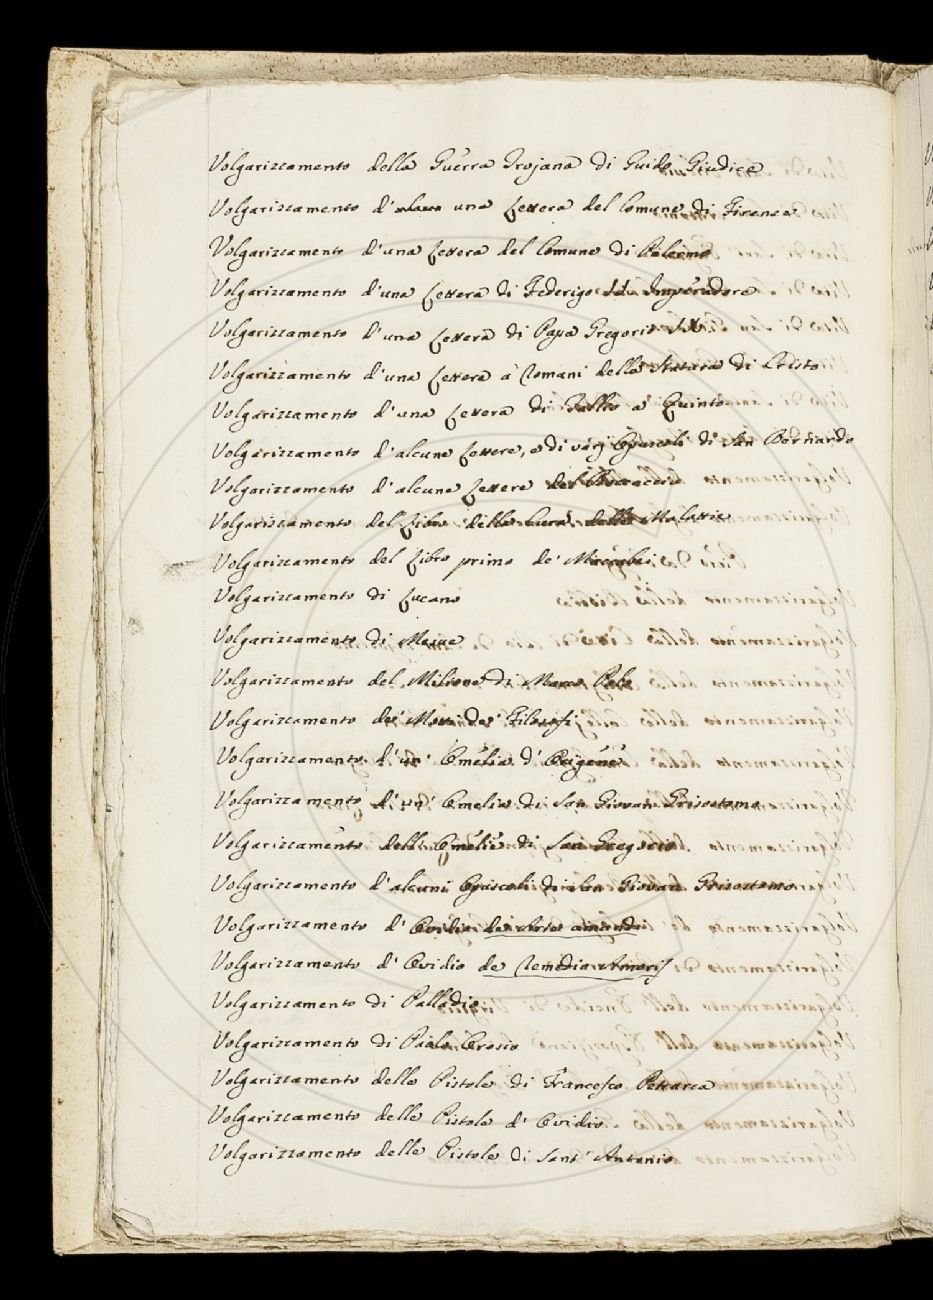 Volgarizzamento della Guerra Trojana di Guido Giudice
Volgarizzamento d' una Lettera del Comune di Firenze
Volgarizzamento d'una Lettera del Comune di Palermo
Volgarizzamento d'una Lettera di Federigo II Imperadore
Volgarizzamento d'una Lettera di Papa Gregorio IX
Volgarizzamento d'una Lettera a' Romani della Statura di Cristo
Volgarizzamento d'una Lettera di Tullio a Quinto
Volgarizzamento d'alcune Lettere, e di varj Opuscoli di San Bernardo
Volgarizzamento d'alcune Lettere del Boccaccio
Volgarizzamento del Libro della Cura delle Malattie
Volgarizzamento del Libro primo de'
Volgarizzamento di Lucano
Volgarizzamento di Mesue
Volgarizzamento del Milione di Marco Polo
Volgarizzamento de' Morali de' Filosofi
Volgarizzamento d'un' Omelia d' Origene
Volgarizzamento d'un' Omelia di San Giovan Grisostomo
Volgarizzamento delle Omelie di San Gregorio
Volgarizzamento d'alcuni Opuscoli di San Giovan Grisostomo
Volgarizzamento d' Ovidio de Arte amandi
Volgarizzamento d' Ovidio de Remedio Amoris
Volgarizzamento di Palladio
Volgarizzamento di Paolo Orosio
Volgarizzamento delle Pistole di Francesco Petrarca
Volgarizzamento delle Pistole d' Ovidio
Volgarizzamento delle Pistole di Sant' Antonio